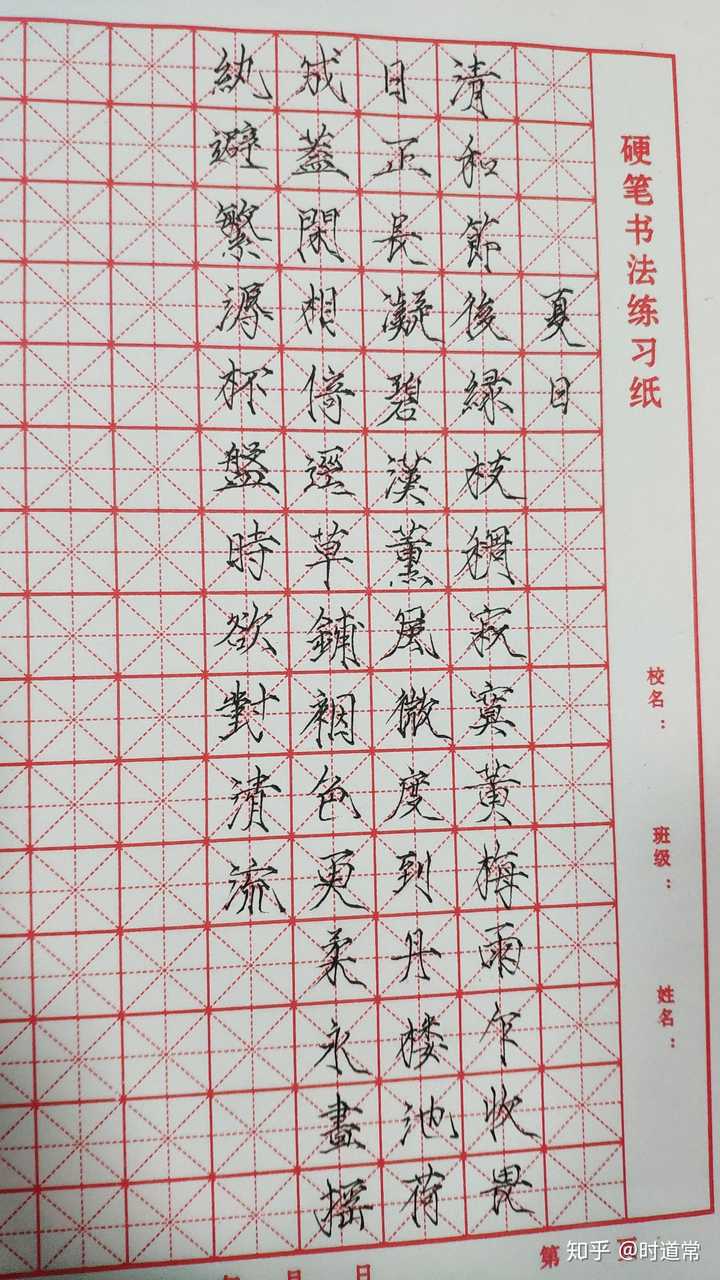 硬笔书法练习纸
校名：
班级：
姓名：
夏日
清和節後緑枝稠寂寞黄梅雨乍收畏
日正長凝碧漢薰風微度到丹楼池荷
成蓋閑相倚逕草鋪裀色更柔永晝摇
紈避繁溽杯盤時欲對清流
年 月 日
第
知乎 @时道常